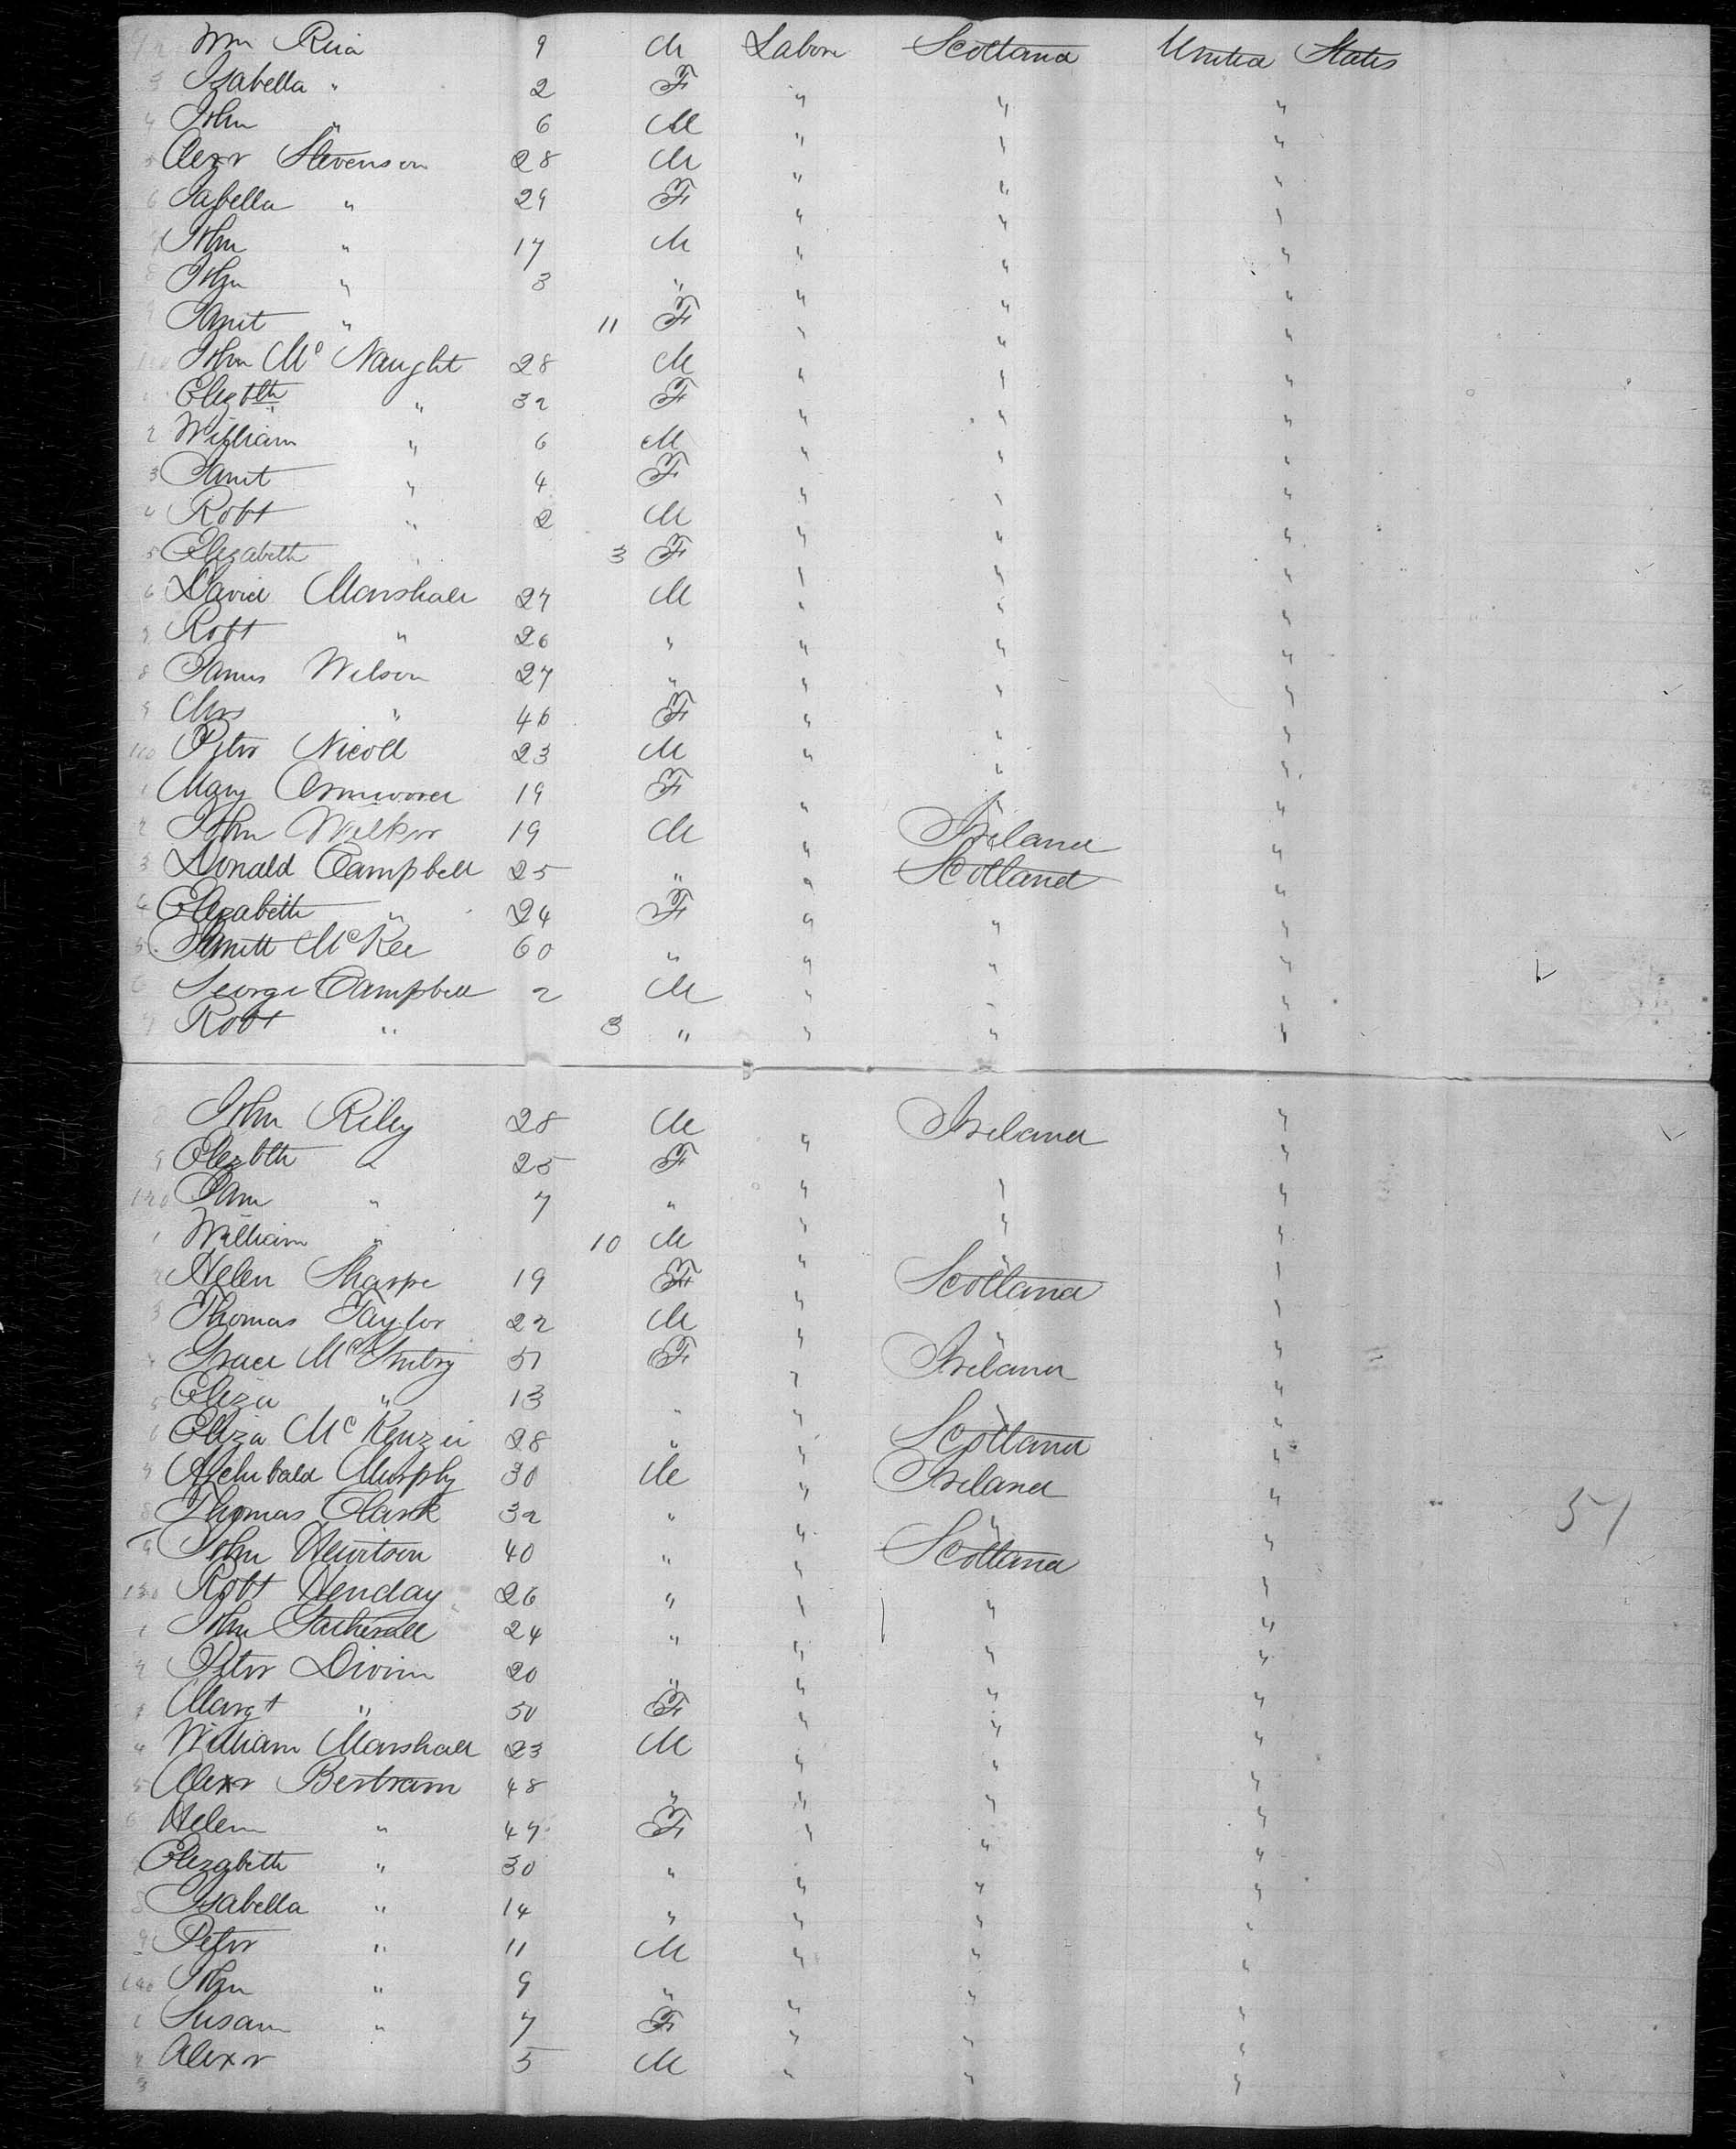 92 Wm Reid 9 M Labore Scotland United States
3 Isabella " 2 F " " "
4 John " 6 M " " "
5 Alexr Stevenson 28 M " " "
6 Isabella " 29 F " " "
7 John " 17 M " " "
8 John " 3 " " " "
9 Janet " 11 F " " "
100 John Mc Naught 28 M " " "
1 Elizbth " 32 F " " "
2 William " 6 M " " "
3 Janet " 4 F " " "
4 Robt " 2 M " " "
5 Elizabeth " 3 F " " "
6 David Marshall 27 M " " "
7 Robt " 26 " " " "
8 James Wilson 27 " " " "
9 Mrs " 46 F " " "
110 Peter Nicoll 23 M " " "
1 Mary 19 F " " "
2 John Walker 19 M " Ireland "
3 Donald Campbell 25 " " Scotland "
4 Elizabeth " 24 F " " "
5 McKee 60 " " " "
6 George Campbell 2 M " " "
7 Robt " 3 " " " "
John Riley 28 M " Ireland "
9 Elizbth " 25 F " " "
120 Jane " 7 " " " "
1 William " 10 M " " "
2 Helen Sharpe 19 F " Scotland "
3 Thomas Taylor 22 M " " "
4 Grace 51 F " Ireland "
5 Eliza " 13 " " " "
6 Eliza McKenzie 28 " " Scotland "
7 Archibald Murphy 30 M " Ireland "
8 Thomas Clark 32 " " " " 51
9 John Hewitson 40 " " Scotland "
130 Robt Henday 26 " " " "
1 John 24 " " " "
2 Peter Divin 20 " " " "
3 Margt " 50 F " " "
4 William Marshall 23 M " " "
5 Alexr Bertram 48 " " " "
6 Helen " 47 F " " "
7 Elizabeth " 30 " " " "
8 Isabella " 14 " " " "
9 Peter " 11 M " " "
140 John " 9 " " " "
1 Susan " 7 F " " "
2 Alexr 5 M " " "
3